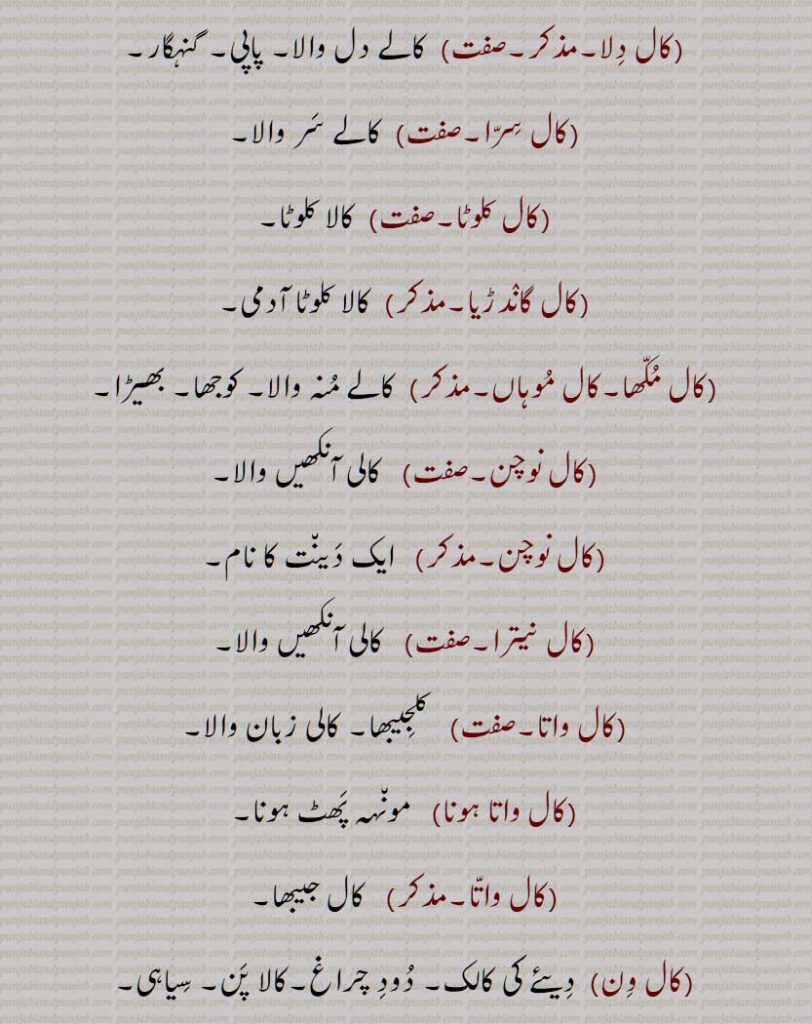 (کال دِلا۔مذکر۔صفت) کالے دل والا۔ پاپی۔ گنہگار۔
(کال سِرّا۔صفت) کالے سَر والا۔
(کال کلوٹا۔صفت) کالا کلوٹا۔
(کال گانْدڑیا۔مذکر) کالا کلوٹا آدمی۔
(کال مُکّھا۔کال مُوہاں۔مذکر) کالے مُنہ والا۔ کوجھا۔ بھیڑا۔
(کال نوچن۔صفت) کالی آنکھیں والا۔
(کال نوچن۔مذکر) ایک دَینْت کا نام۔
(کال نیترا۔صفت) کالی آنکھیں والا۔
(کال واتا۔صفت) کلجِیبھا۔ کالی زبان والا۔
(کال واتا ہونا) مونْہہ پَھٹ ہونا۔
(کال واتّا۔مذکر) کال جیبھا۔
(کال وِن) دِیئے کی کالک۔ دُودِ چراغ۔کالا پَن۔ سِیاہی۔